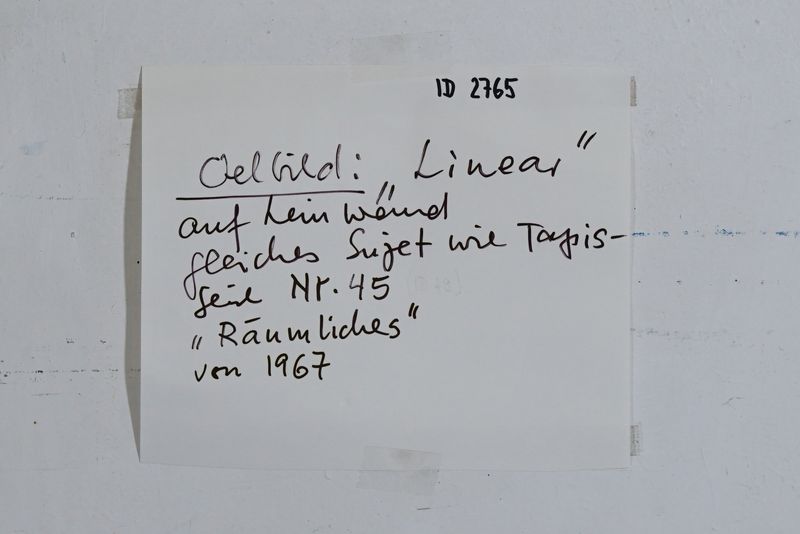 ID 2765
Oelbild: „Linear"
auf Leinwand
gleiches Sujet wie Tapis-
serie Nr. 45
„Räumliches"
von 1967